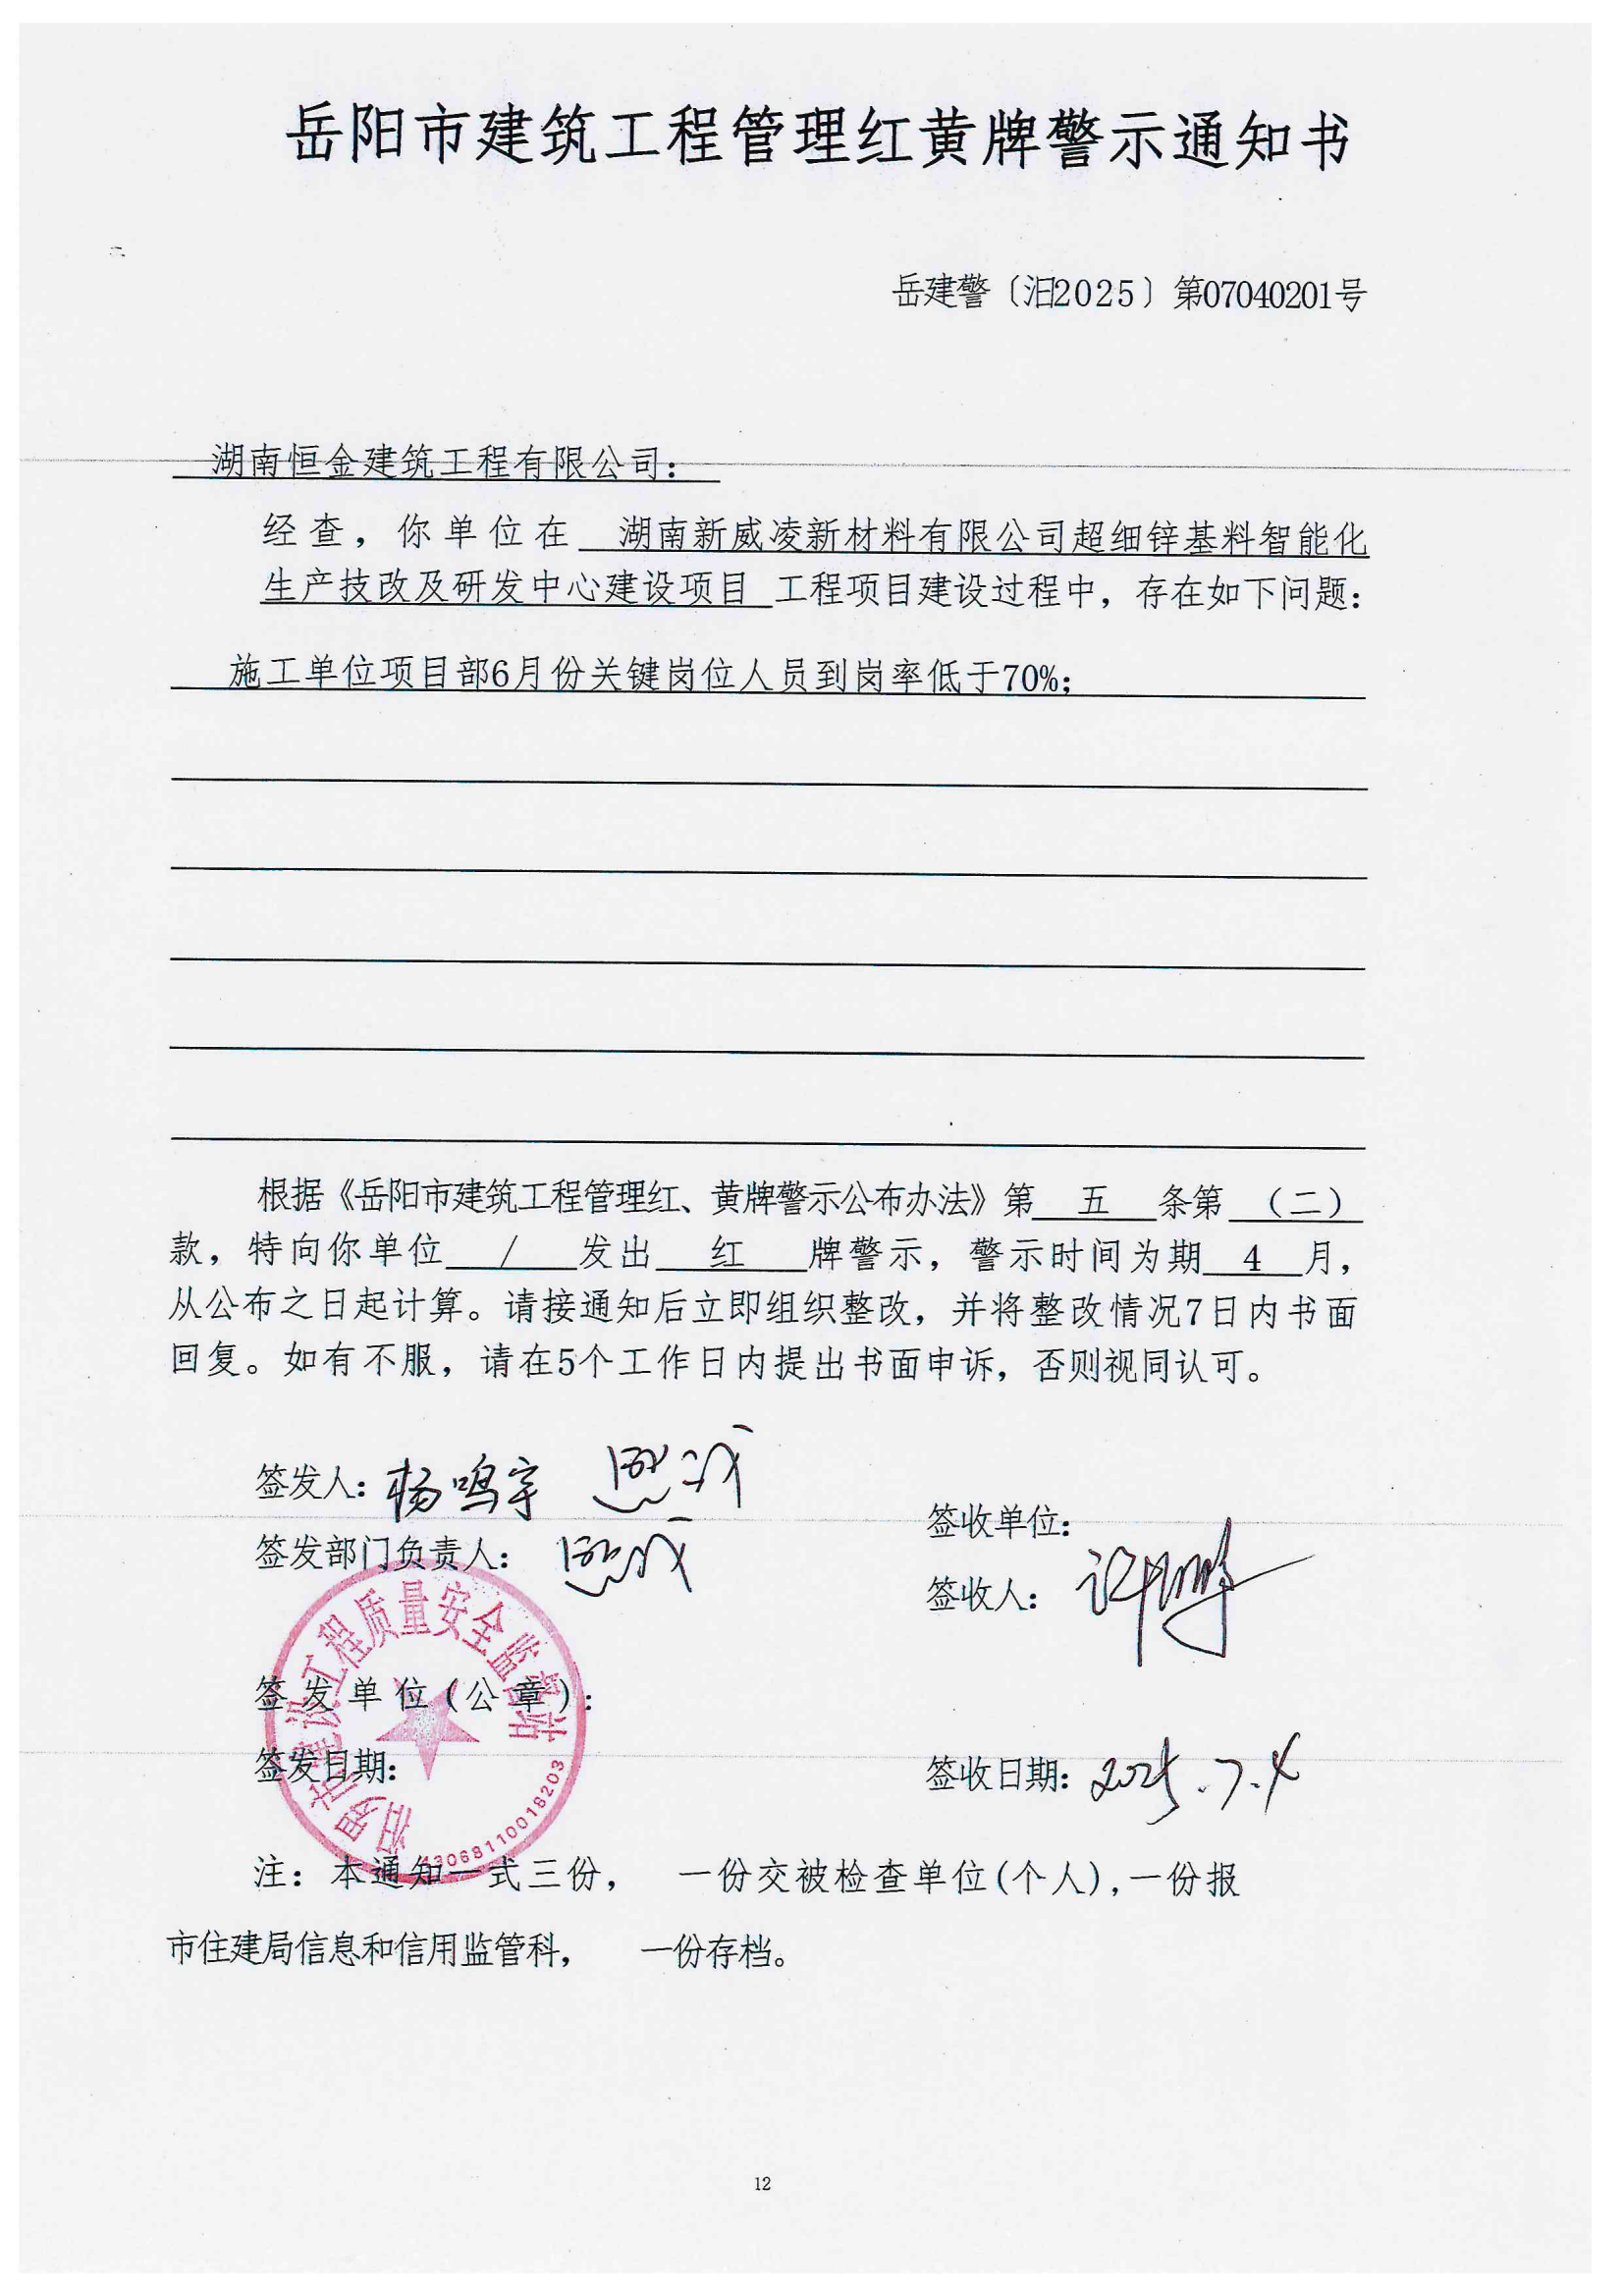 岳阳市建筑工程管理红黄牌警示通知书
岳建警〔汨2025〕第07040201号
湖南恒金建筑工程有限公司：
经查，你单位在 湖南新威凌新材料有限公司超细锌基料智能化
生产技改及研发中心建设项目 工程项目建设过程中，存在如下问题：
施工单位项目部6月份关键岗位人员到岗率低于70%；
根据《岳阳市建筑工程管理红、黄牌警示公布办法》第 五 条第 （二）
款，特向你单位 / 发出 红 牌警示，警示时间为期 4 月，
从公布之日起计算。请接通知后立即组织整改，并将整改情况7日内书面
回复。如有不服，请在5个工作日内提出书面申诉，否则视同认可。
签发人：杨鸣宇
签收单位：
签发部门负责人：
签收人：许鹏
汨罗市建设工程质量安全监督站
签发单位（公章）：
签发日期：
签收日期：2025.7.4
43068110018203
注：本通知一式三份， 一份交被检查单位(个人),一份报
市住建局信息和信用监管科， 一份存档。
12